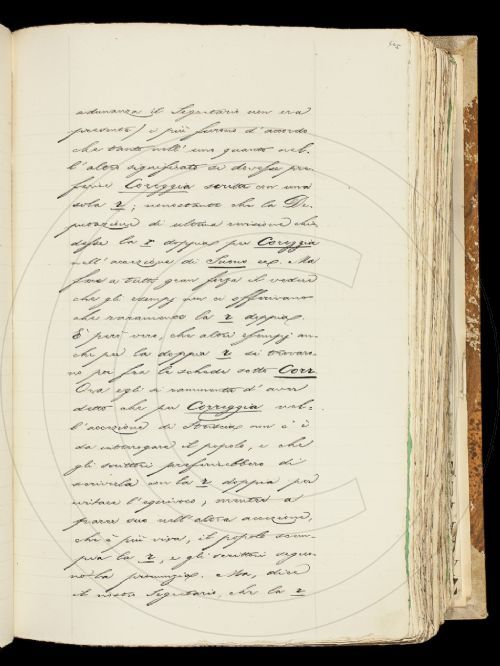 adunanza il Segretario non era
presente) i più furono d'accordo
che tanto nell'uno quanto nel-
l'altro significato si dovesse pre-
ferire Coreggia scritta con una
sola r; nonostante che la De-
putazione di ultima revisione chie-
desse la r doppia per Coreggia
nell'accezione di Suono ec. Ma
fece a tutti gran forza il vedere
che gli esempj non ci offerivano
che raramente la r doppia.
È però vero, che altri esempj an-
che per la doppia r si trovaro-
no poi fra le schede sotto Corr
Ora egli si rammenta d'aver
detto che per Correggia nel-
l'accezione di non c'è
da interrogare il popolo, e che
gli scrittori preferirebbero di
scriverla con la r doppia per
evitare l'equivoco, mentre a
parer suo nell'altra accezione,
che è più viva, il popolo scem-
pia la r, e gli scrittori seguo-
no la pronunzia. Ma, dice
il nostro Segretario, che la r
505